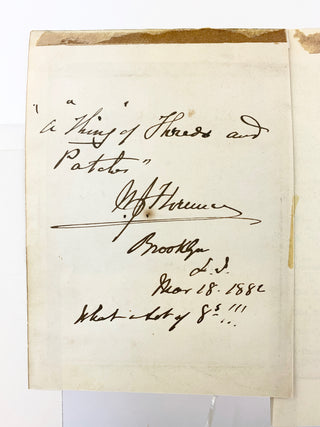 "a "Thing" of Shreds and
Patches"
W J Florence
Brooklyn
L.I.
Mar 18. 1882
What a lot of 8s!!!